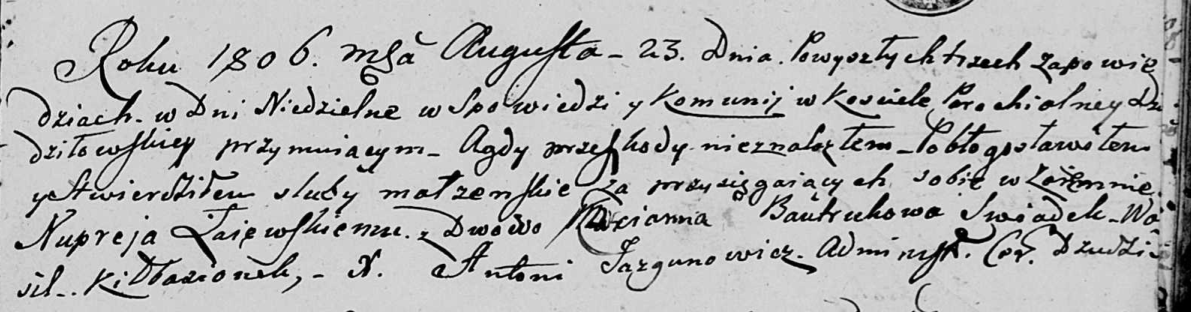 Roku 1806. mścâ Augusta – 23. Dnia. Powyszłych trzech zapowie
dziach. w Dni Niedzielne w Spowiedzi y Komunij w Kosciele Parochialney Dz
dziłowskiey przymuiącym – Agdy przeszkody nieznalazłem – Pobłogosławiłem
y Stwierdziłem sluby małzenskie za przysięgaiących sobie w zaiemnie.
Nupreja Łaiewskiemu. z Dwowo Marcianna Bautrukowa Swiadek – Wa
sil. – N. Antoni Jazgunowicz. Administ. Cer. Dzudzi